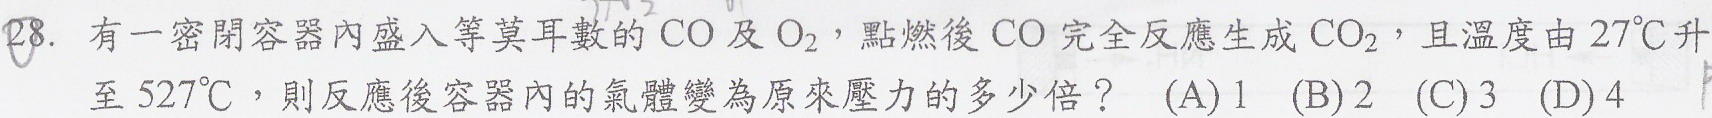 28. 有一密閉容器內盛入等莫耳數的 CO 及 O₂，點燃後 CO 完全反應生成 CO₂，且溫度由 27℃升
至 527℃，則反應後容器內的氣體變為原來壓力的多少倍？ (A) 1 (B) 2 (C) 3 (D) 4